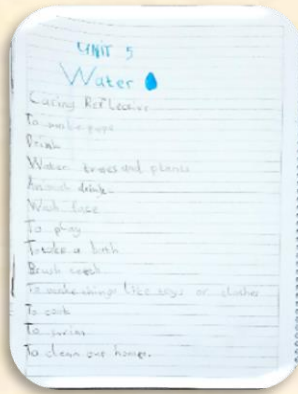 UNIT 5
Water
Caring Reflective
To make
Drink
Water trees and plants
Animals drink
Wash face
To play
To take a bath
Brush teeth
To make things like toys or
To cook
To swim
To clean our homes.